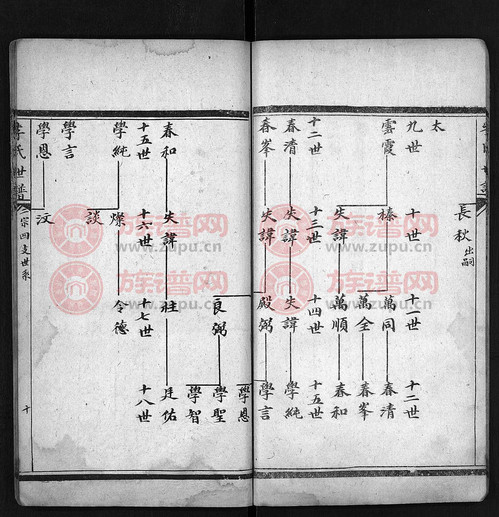 太
長秋出嗣
九世
十世
十一世
十二世
雲霞
榛
萬同
春清
萬全
春峯
失諱
萬順
春和
十二世
十三世
十四世
十五世
春清
失諱
失諱
學純
春峯
失諱
殿弼
學言
學恩
良弼
學聖
學智
春和
失諱
廷佑
十五世
十六世
十七世
十八世
學純
燦
令德
談
學言
學恩
汶
氏世譜
二宗四支世系
十
族谱网
www.zupu.cn
族谱网
www.zupu.cn
族谱网
www.zupu.cn
族谱网
www.zupu.cn